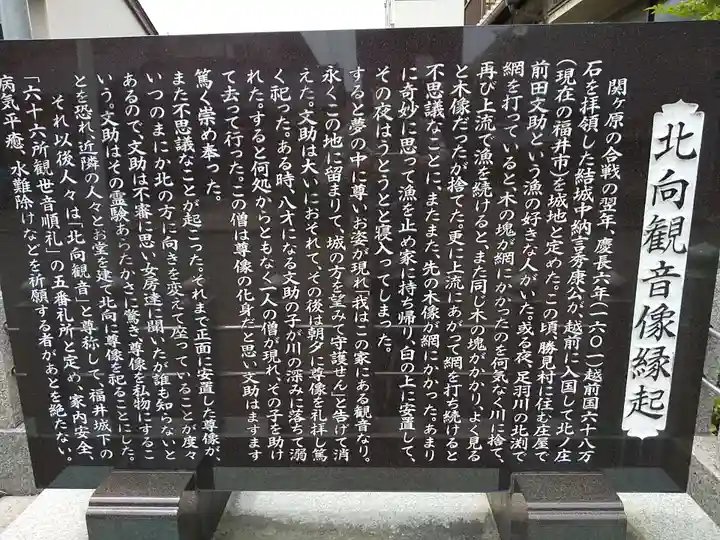 北向観音像縁起
関ヶ原の合戦の翌年、慶長六年(一六〇一)越前国六十八万
石を拝領した結城中納言秀康公が、越前に入国して北ノ庄
(現在の福井市)を城地と定めた。この頃、勝見村に住む庄屋で
前田文助という漁の好きな人がいた。或る夜、足羽川の北渕で
網を打っていると、木の塊が網にかかったのを何気なく川に捨て、
再び上流で漁を続けると、また同じ木の塊がかかり、よく見る
と木像だったが捨てた。更に上流にあがって網を打ち続けると
不思議なことに、またまた、先の木像が網にかかった。あまり
に奇妙に思って漁を止め家に持ち帰り、臼の上に安置して、
その夜はうとうとと寝入ってしまった。
すると夢の中に尊いお姿が現れ「我はこの家にある観音なり。
永くこの地に留まりて、城の方を望みて守護せん」と告げて消
えた。文助は大いにおそれて、その後は朝夕に尊像を礼拝し篤
く祀った。ある時、八才になる文助の子が川の深みに落ちて溺
れた。すると何処からともなく一人の僧が現れ、その子を助け
て去って行った。この僧は尊像の化身だと思い文助はますます
篤く崇め奉った。
また不思議なことが起こった。それまで正面に安置した尊像が、
いつのまにか北の方に向きを変えて座っていることが度々
あるので、文助は不審に思い女房達に聞いたが誰も知らないと
いう。文助はその霊験あらたかさに驚き尊像を私物にするこ
とを恐れ、近隣の人々とお堂を建て北向に尊像を祀ることにした。
それ以後人々は「北向観音」と尊称して、福井城下の
「六十六所観世音順礼」の五番札所と定め、家内安全、
病気平癒、水難除けなどを祈願する者があとを絶たない。